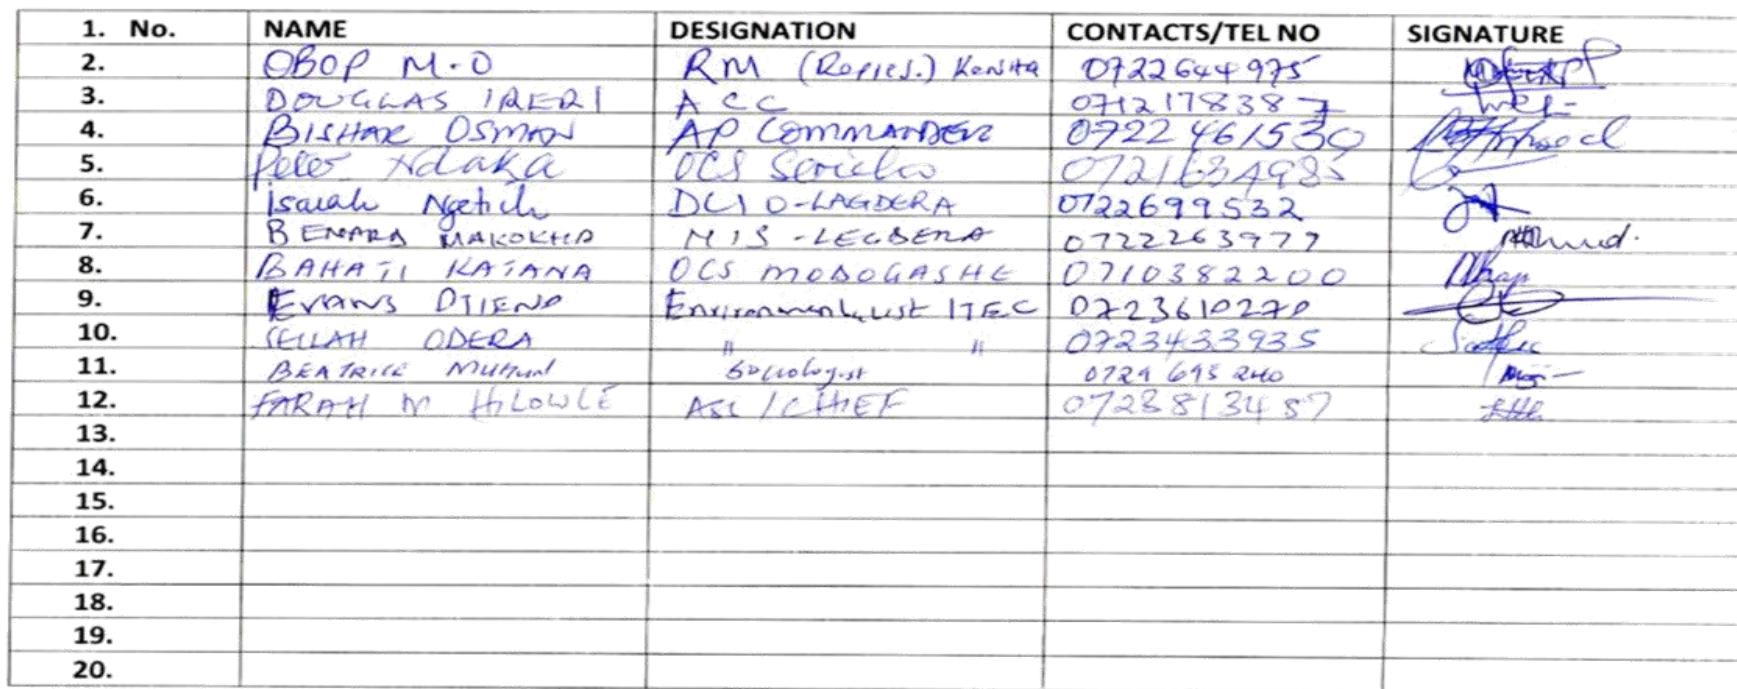 1. No. NAME DESIGNATION CONTACTS/TEL NO SIGNATURE
2. OBOP M.O RM (Repres.) KenHa 0722644975
3. DOUGLAS IRERI ACC 0712178387
4. BISHAR OSMAN AP COMMANDER 0722461530
5. Peter Ndaka OCS Sericho 0721634985
6. Isaiah Ngetich DCIO-LAGDERA 0722699532
7. BENARD MAKOKHA NIS - LEGDERA 0722263977
8. BAHATI KATANA OCS MODOGASHE 0710382200
9. EVANS OTIENO Environmentalist ITEC 0723610270
10. SELLAH ODERA " " 0723433935
11. BEATRICE Sociologist 0729 695 240
12. FARAH M HILOWLE CHIEF 0723813457
13.
14.
15.
16.
17.
18.
19.
20.